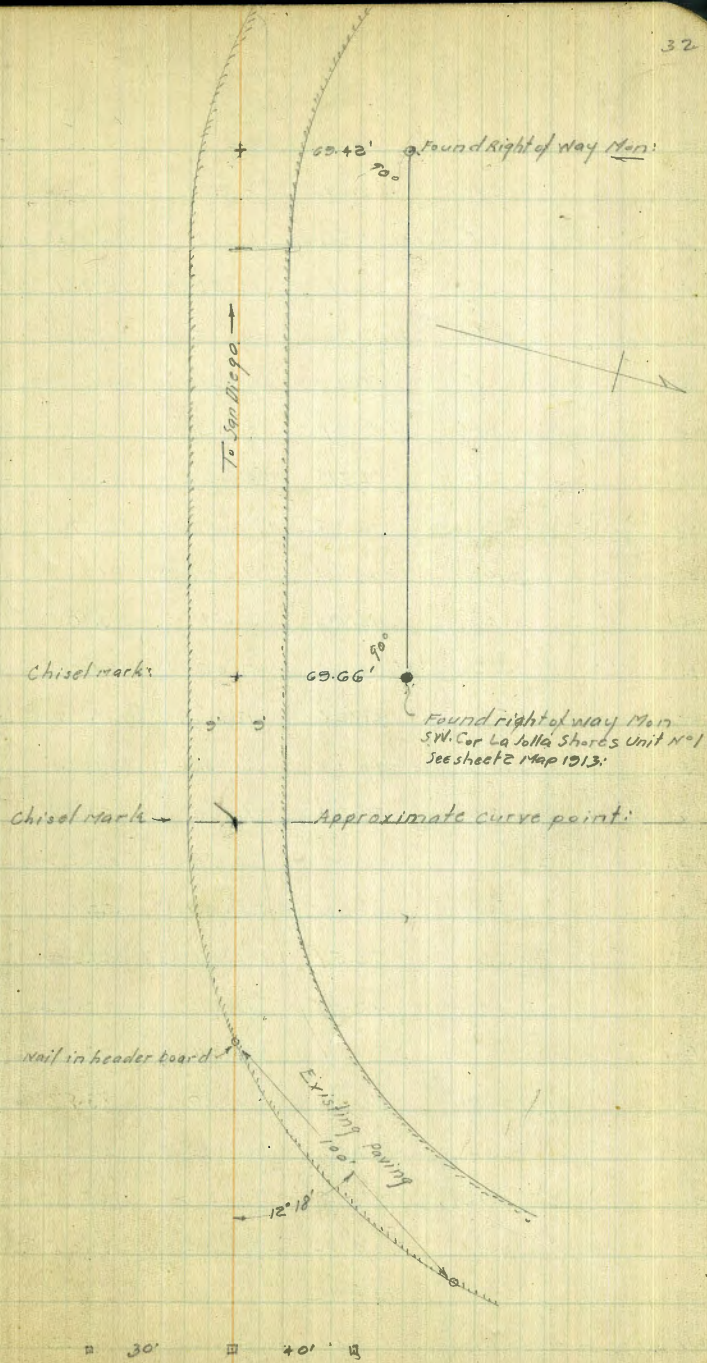 32
69.42' Found Right of Way Mon:
90°
To San Diego
90°
Chisel mark: 69.66'
9' 9'
Found right of way Mon
S.W. Cor La Jolla Shores Unit No 1
See sheet 2 Map 1913:
Chisel Mark Approximate curve point:
Nail in header board
Existing Paving
100'
12° 18'
30' 40'